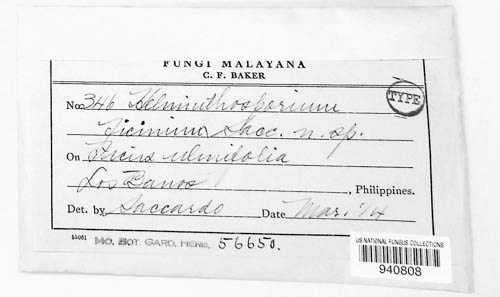 FUNGI MALAYANA
C. F. BAKER
No. 346 Helminthosporium
ficinum Sacc. n. sp.
TYPE
On Ficus ulmifolia
Los Banos, Philippines.
Det. by Saccardo Date Mar. '14
MO. BOT. GARD. HERB. 56650.
US NATIONAL FUNGUS COLLECTIONS
940808